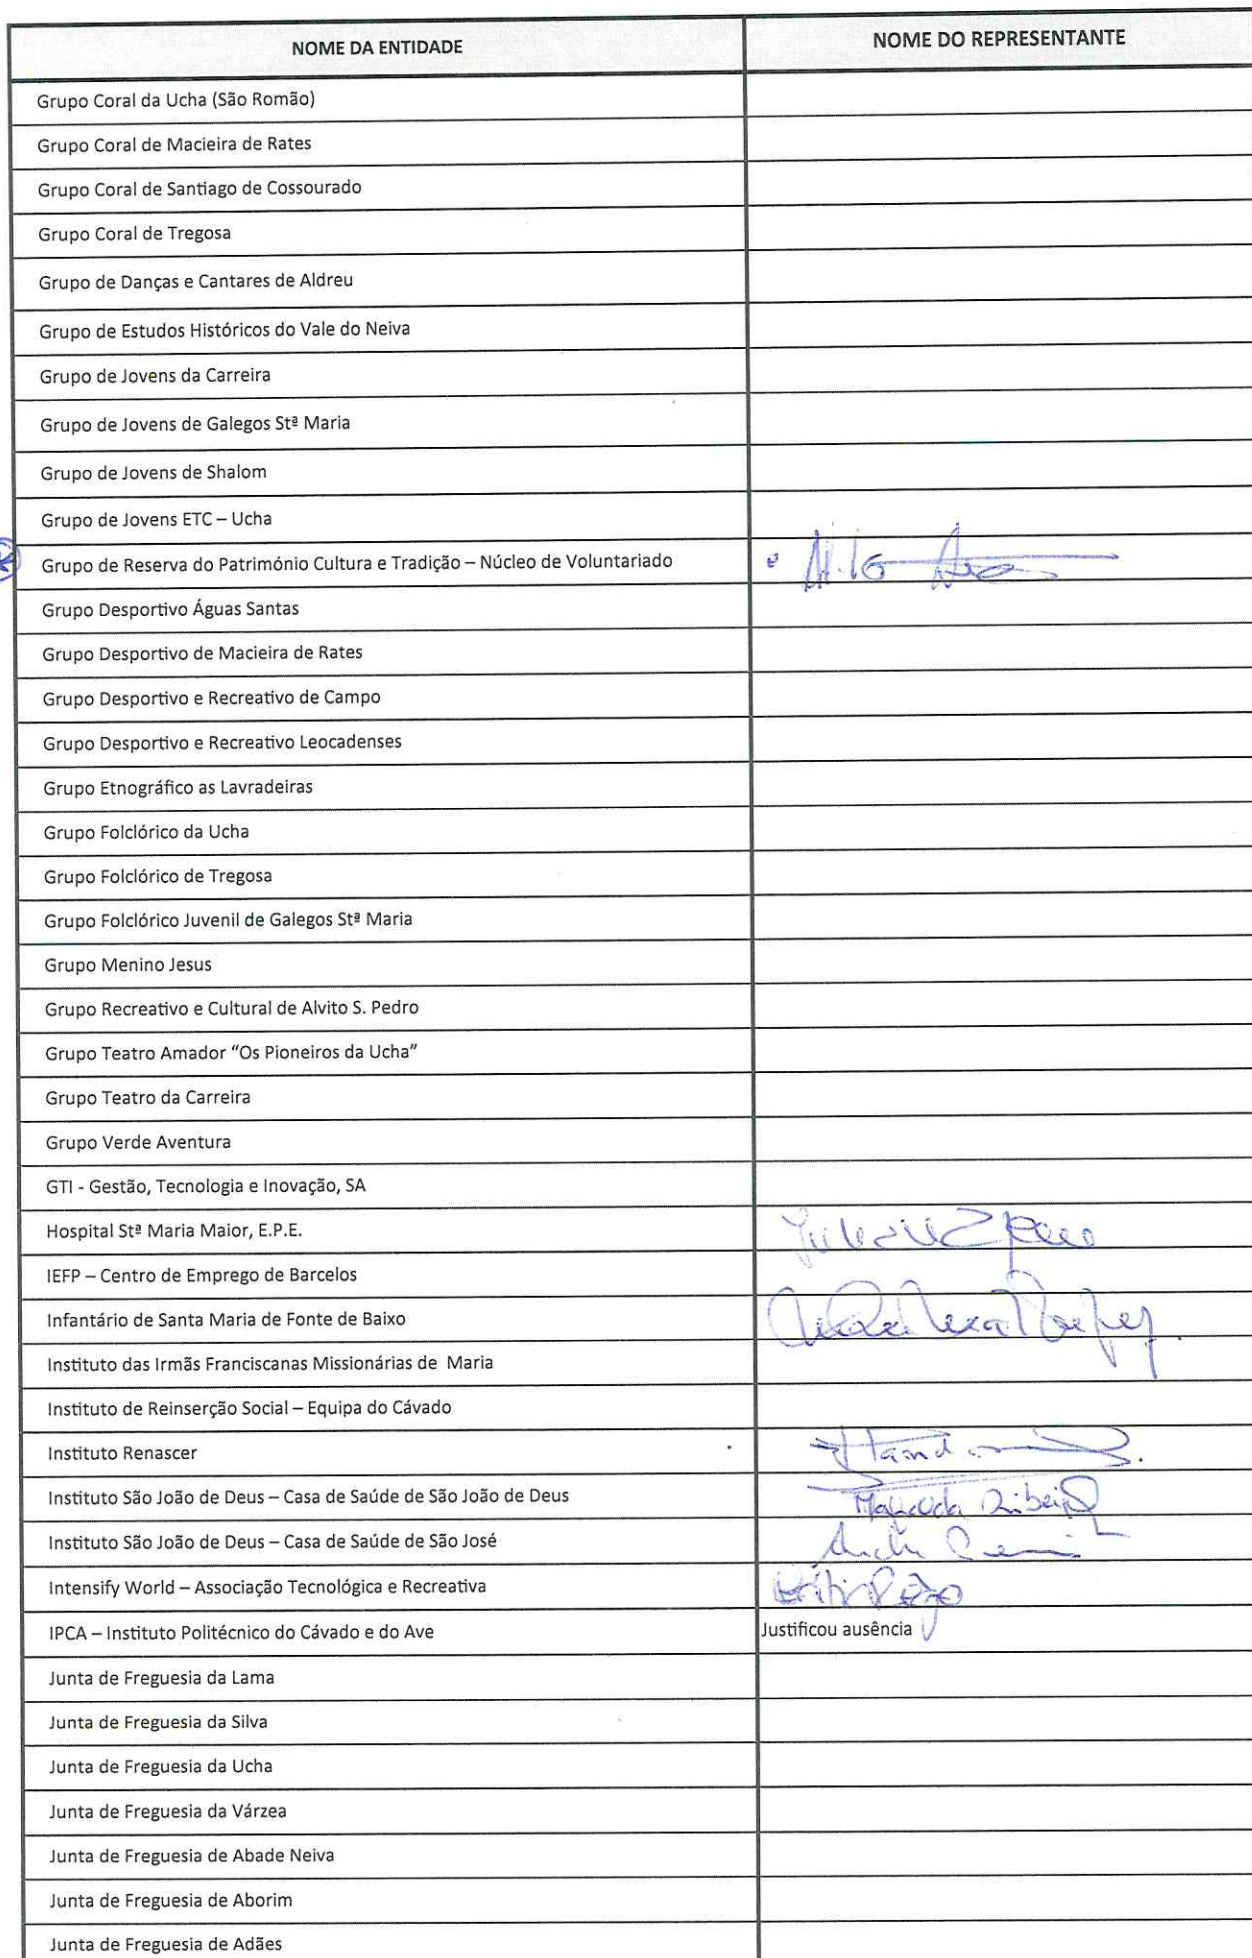 NOME DA ENTIDADE NOME DO REPRESENTANTE
Grupo Coral da Ucha (São Romão)
Grupo Coral de Macieira de Rates
Grupo Coral de Santiago de Cossourado
Grupo Coral de Tregosa
Grupo de Danças e Cantares de Aldreu
Grupo de Estudos Históricos do Vale do Neiva
Grupo de Jovens da Carreira
Grupo de Jovens de Galegos Stª Maria
Grupo de Jovens de Shalom
Grupo de Jovens ETC – Ucha
Grupo de Reserva do Património Cultura e Tradição – Núcleo de Voluntariado
Grupo Desportivo Águas Santas
Grupo Desportivo de Macieira de Rates
Grupo Desportivo e Recreativo de Campo
Grupo Desportivo e Recreativo Leocadenses
Grupo Etnográfico as Lavradeiras
Grupo Folclórico da Ucha
Grupo Folclórico de Tregosa
Grupo Folclórico Juvenil de Galegos Stª Maria
Grupo Menino Jesus
Grupo Recreativo e Cultural de Alvito S. Pedro
Grupo Teatro Amador “Os Pioneiros da Ucha”
Grupo Teatro da Carreira
Grupo Verde Aventura
GTI - Gestão, Tecnologia e Inovação, SA
Hospital Stª Maria Maior, E.P.E.
IEFP – Centro de Emprego de Barcelos
Infantário de Santa Maria de Fonte de Baixo
Instituto das Irmãs Franciscanas Missionárias de Maria
Instituto de Reinserção Social – Equipa do Cávado
Instituto Renascer
Instituto São João de Deus – Casa de Saúde de São João de Deus Ribeiro
Instituto São João de Deus – Casa de Saúde de São José
Intensify World – Associação Tecnológica e Recreativa
IPCA – Instituto Politécnico do Cávado e do Ave Justificou ausência
Junta de Freguesia da Lama
Junta de Freguesia da Silva
Junta de Freguesia da Ucha
Junta de Freguesia da Várzea
Junta de Freguesia de Abade Neiva
Junta de Freguesia de Aborim
Junta de Freguesia de Adães